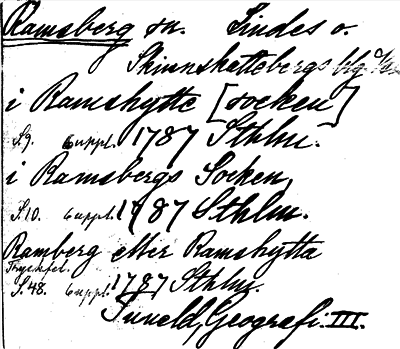 Ramsberg sn. Lindes o.
Skinnskattebergs blg
i Ramshytte [socken]
S.9. 6 uppl. 1787 Sthlm.
i Ramsbergs Socken,
S.10. 6 uppl. 1787 Sthlm.
Ramberg eller Ramshytta
Tryckfel.
S.48. 6 uppl. 1787 Sthlm.
Tuneld, Geografi. III.